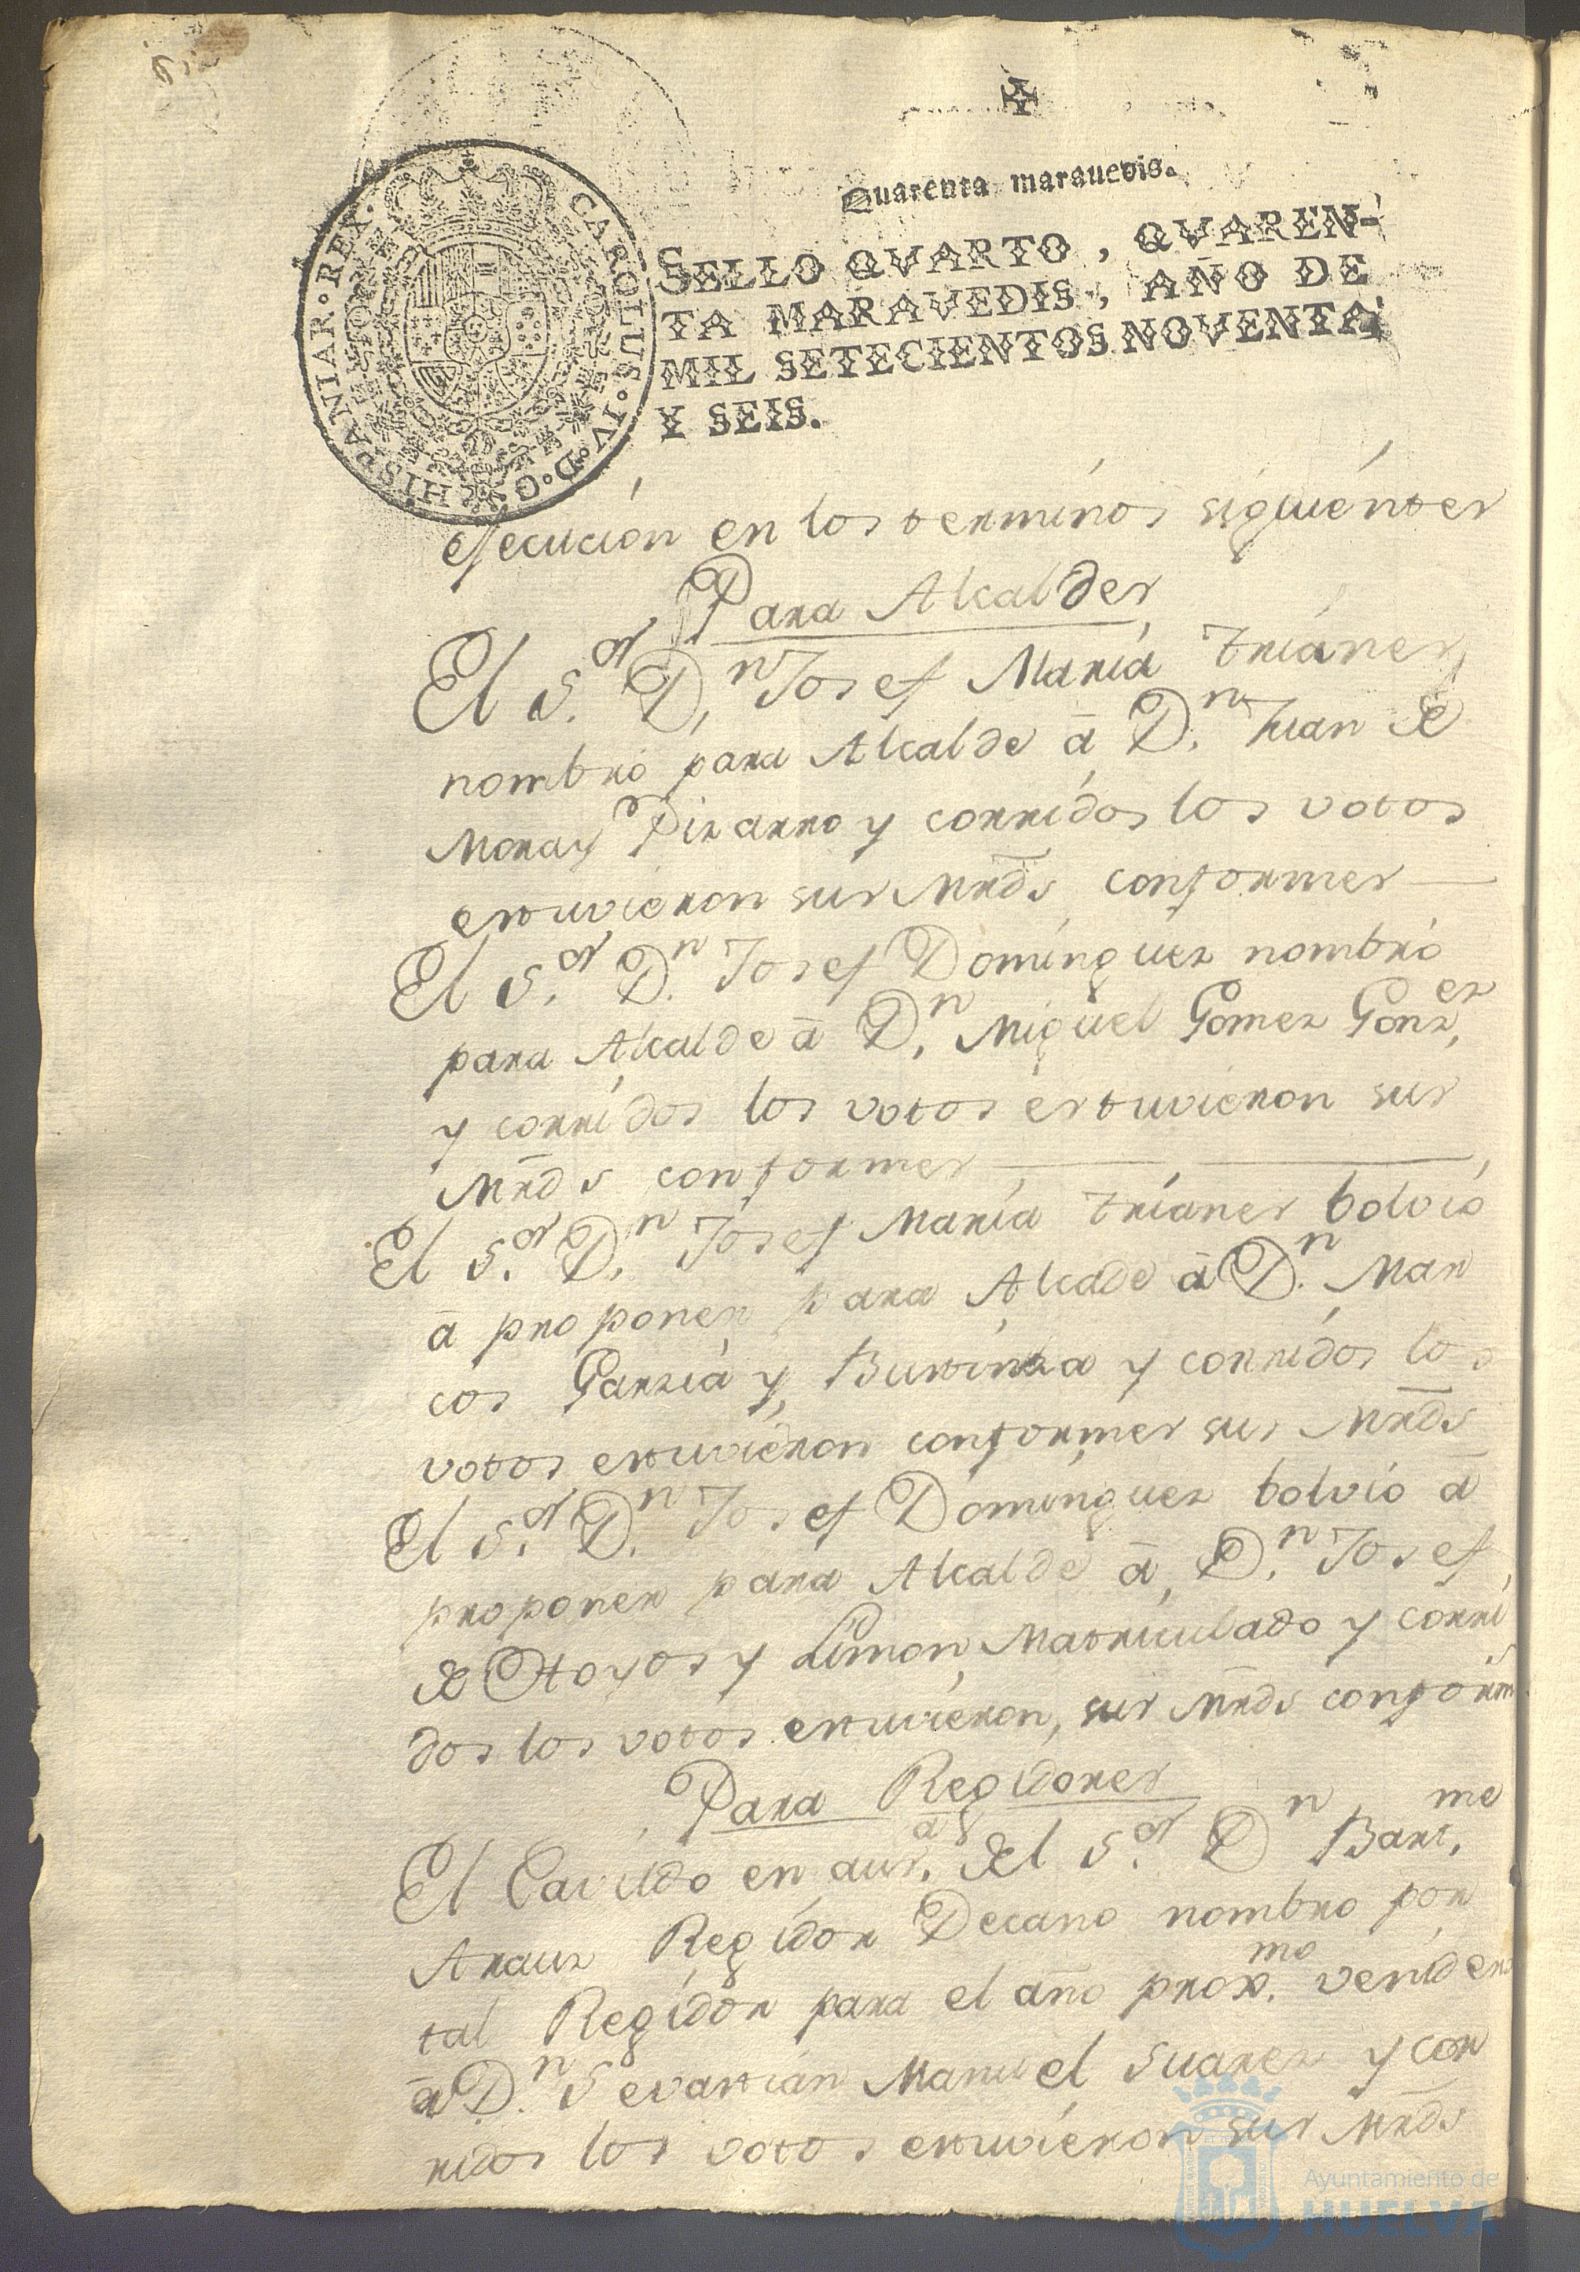 Quarenta marauedis.
SELLO QVARTO, QVAREN-
TA MARAVEDIS, AÑO DE
MIL SETECIENTOS NOVENTA
Y SEIS.
CAROLUS·IV·D·G·HISPANIAR·REX·
ejecución en los terminos siguientes
Para Alcaldes
El S.or D.n Josef María trianes
nombró para Alcalde á D.n Juan de
Mora y Pizarro y corridos los votos
estuvieron sus Mrds conformes
El S.or D.n Josef Dominguez nombró
para Alcalde á D.n Miguel Gomez Gonz.ez
y corridos los votos estuvieron sus
Mrds conformes
El S.or D.n Josef María trianes bolvió
á proponer para Alcade á D.n Mar
cos Garzia y Bustinza y corridos los
votos estuvieron conformes sus Mrds
El S.or D.n Josef Dominguez bolvió á
proponer para Alcalde á D.n Josef
de Hoyos y Limon, Matriculado y corri
dos los votos estuvieron, sus Mrds conform
Para Regidores
El Cavildo en aus.a del S.or D.n Bart.me
Arauz Regidor Decano nombro por
tal Regidor para el año prox.mo venidero
á D.n Sevastian Manuel Suarez y cor
ridos los votos estuvieron sus Mrds
Ayuntamiento de
HUELVA